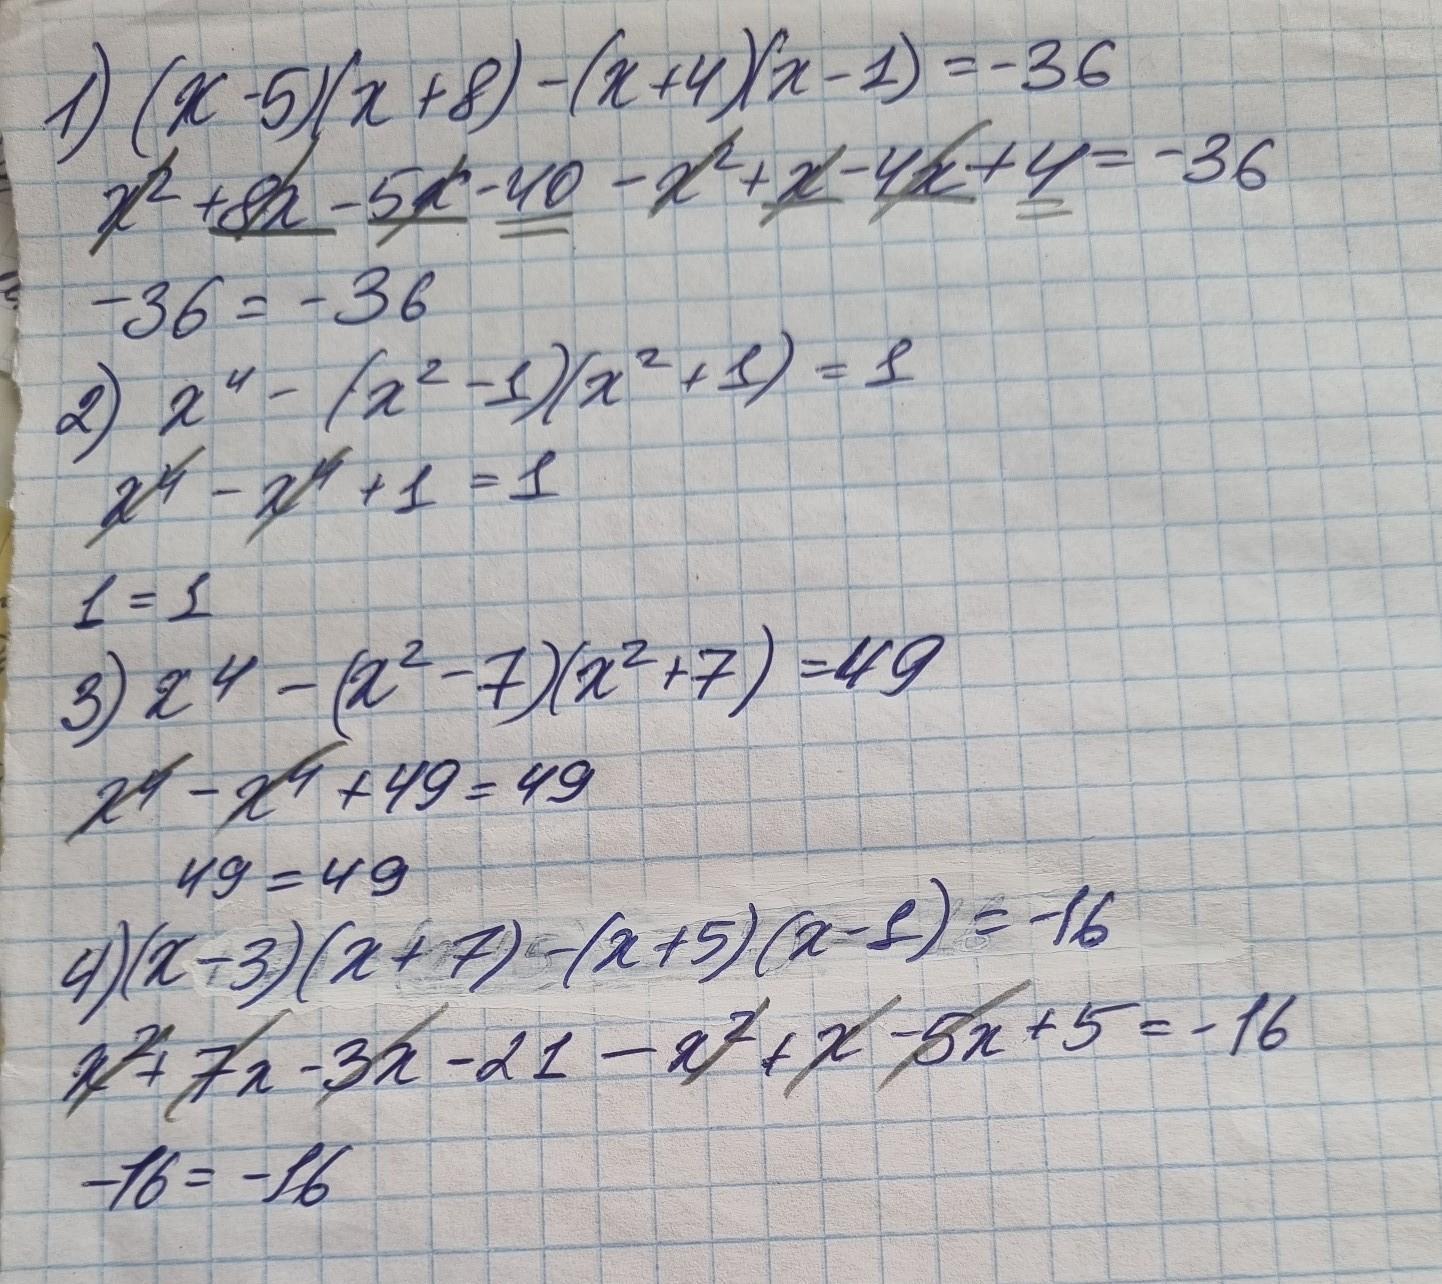 1) (x-5)(x+8)-(x+4)(x-1)=-36
x²+8x-5x-40-x²+x-4x+4=-36
-36=-36
2) x⁴-(x²-1)(x²+1)=1
x⁴-x⁴+1=1
1=1
3) x⁴-(x²-7)(x²+7)=49
x⁴-x⁴+49=49
49=49
4) (x-3)(x+7)-(x+5)(x-1)=-16
x²+7x-3x-21-x²+x-5x+5=-16
-16=-16